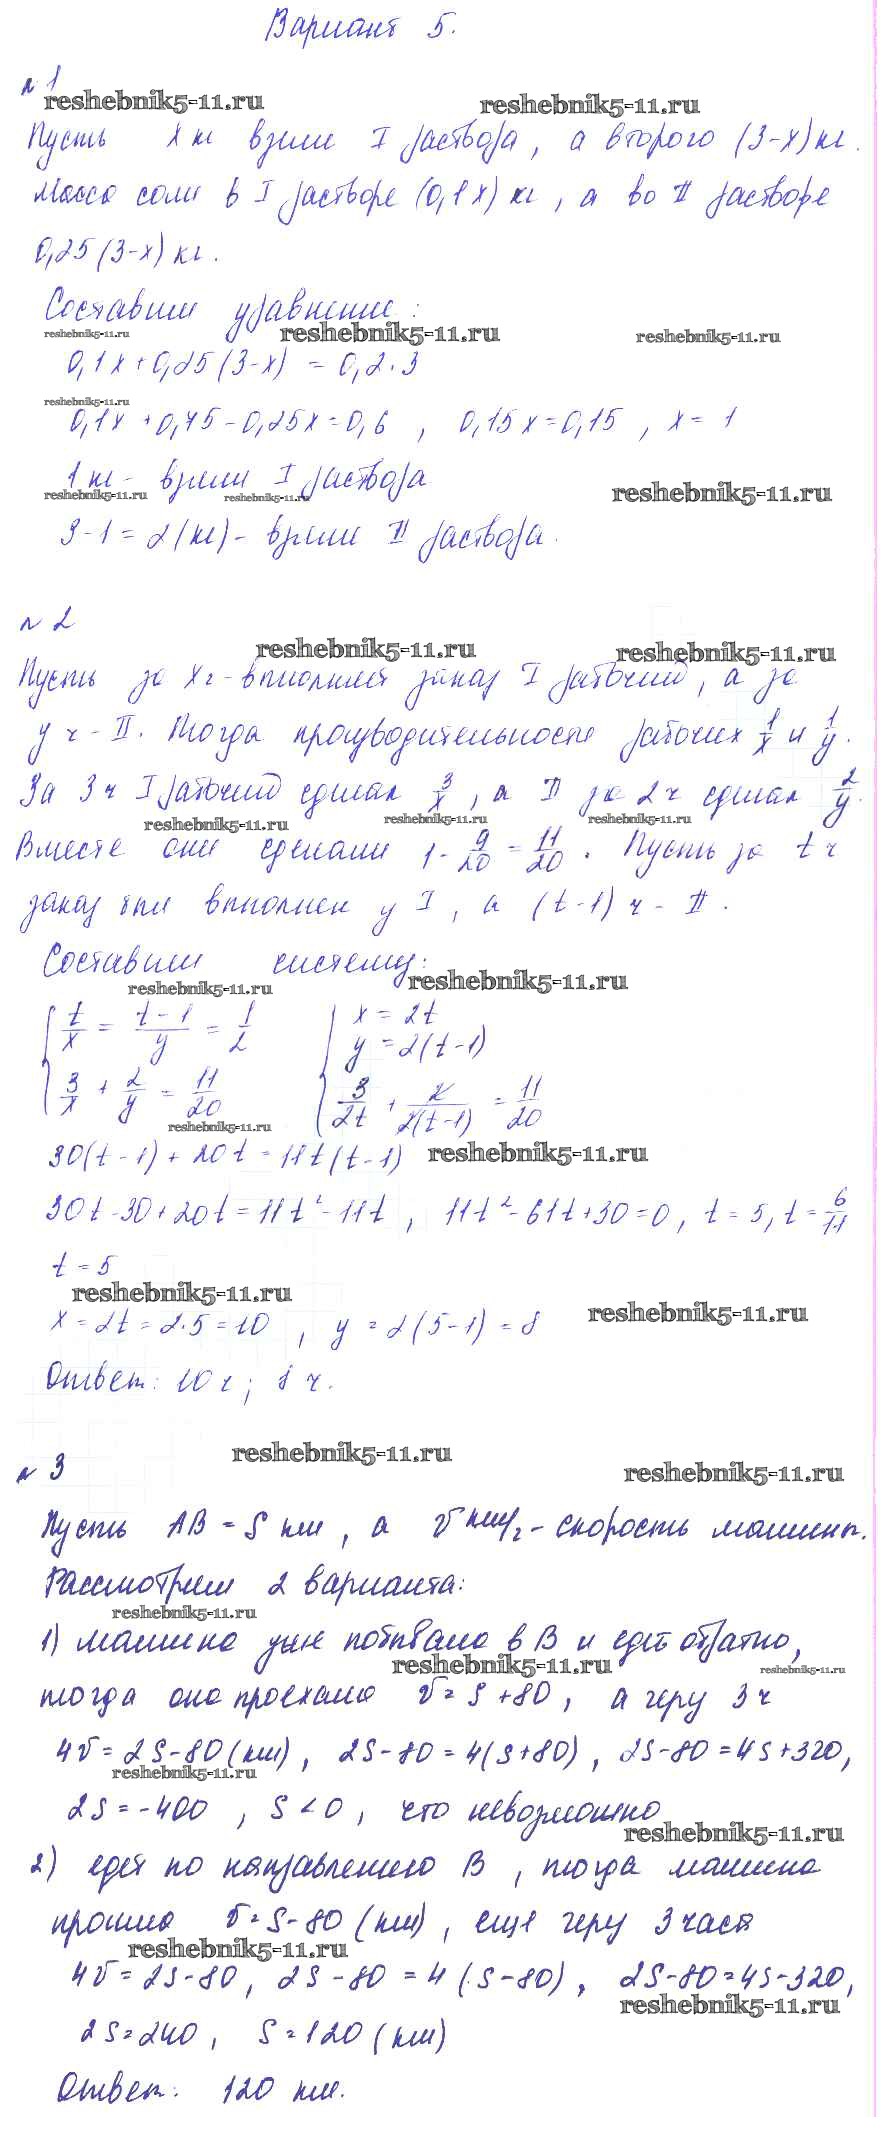 Вариант 5.
№ 1
reshebnik5-11.ru reshebnik5-11.ru
Пусть x кг взяли I раствора, а второго (3-x) кг.
Масса соли в I растворе (0,1x) кг, а во II растворе
0,25(3-x) кг.
Составим уравнение:
reshebnik5-11.ru reshebnik5-11.ru reshebnik5-11.ru
0,1x+0,25(3-x) = 0,2·3
reshebnik5-11.ru
0,1x+0,75-0,25x=0,6, 0,15x=0,15, x= 1
1 кг - взяли I раствора
reshebnik5-11.ru reshebnik5-11.ru reshebnik5-11.ru
3-1=2(кг)- взяли II раствора.
№ 2
reshebnik5-11.ru reshebnik5-11.ru
Пусть за x ч - выполнит заказ I рабочий, а за
y ч - II. Тогда производительности рабочих 1/x и 1/y.
За 3 ч I рабочий сделал 3/x, а II за 2 ч сделал 2/y.
reshebnik5-11.ru reshebnik5-11.ru reshebnik5-11.ru
Вместе они сделали 1-9/20=11/20. Пусть за t ч
заказ был выполнен у I, а (t-1) ч - II.
Составим систему:
reshebnik5-11.ru reshebnik5-11.ru
t/x = t-1/y = 1/2 x=2t
y=2(t-1)
3/x + 2/y = 11/20 3/2t + 2/2(t-1) = 11/20
reshebnik5-11.ru
30(t-1)+20t=11t(t-1) reshebnik5-11.ru
30t-30+20t=11t²-11t, 11t²-61t+30=0, t=5, t=6/11
t=5
reshebnik5-11.ru reshebnik5-11.ru
x=2t=2·5=10, y=2(5-1)=8
Ответ: 10 ч; 8 ч.
reshebnik5-11.ru
№ 3 reshebnik5-11.ru
Пусть AB=S км, а v км/ч - скорость машины.
Рассмотрим 2 варианта:
reshebnik5-11.ru
1) машина уже побывала в B и едет обратно,
reshebnik5-11.ru reshebnik5-11.ru
тогда она проехала v=S+80, а через 3 ч
4v=2S-80(км), 2S-80=4(S+80), 2S-80=4S+320,
reshebnik5-11.ru
2S=-400, S<0, что невозможно
reshebnik5-11.ru
2) едет по направлению B, тогда машина
прошла v=S-80(км), еще через 3 часа
reshebnik5-11.ru
4v=2S-80, 2S-80=4(S-80), 2S-80=4S-320,
reshebnik5-11.ru
2S=240, S=120(км)
Ответ: 120 км.